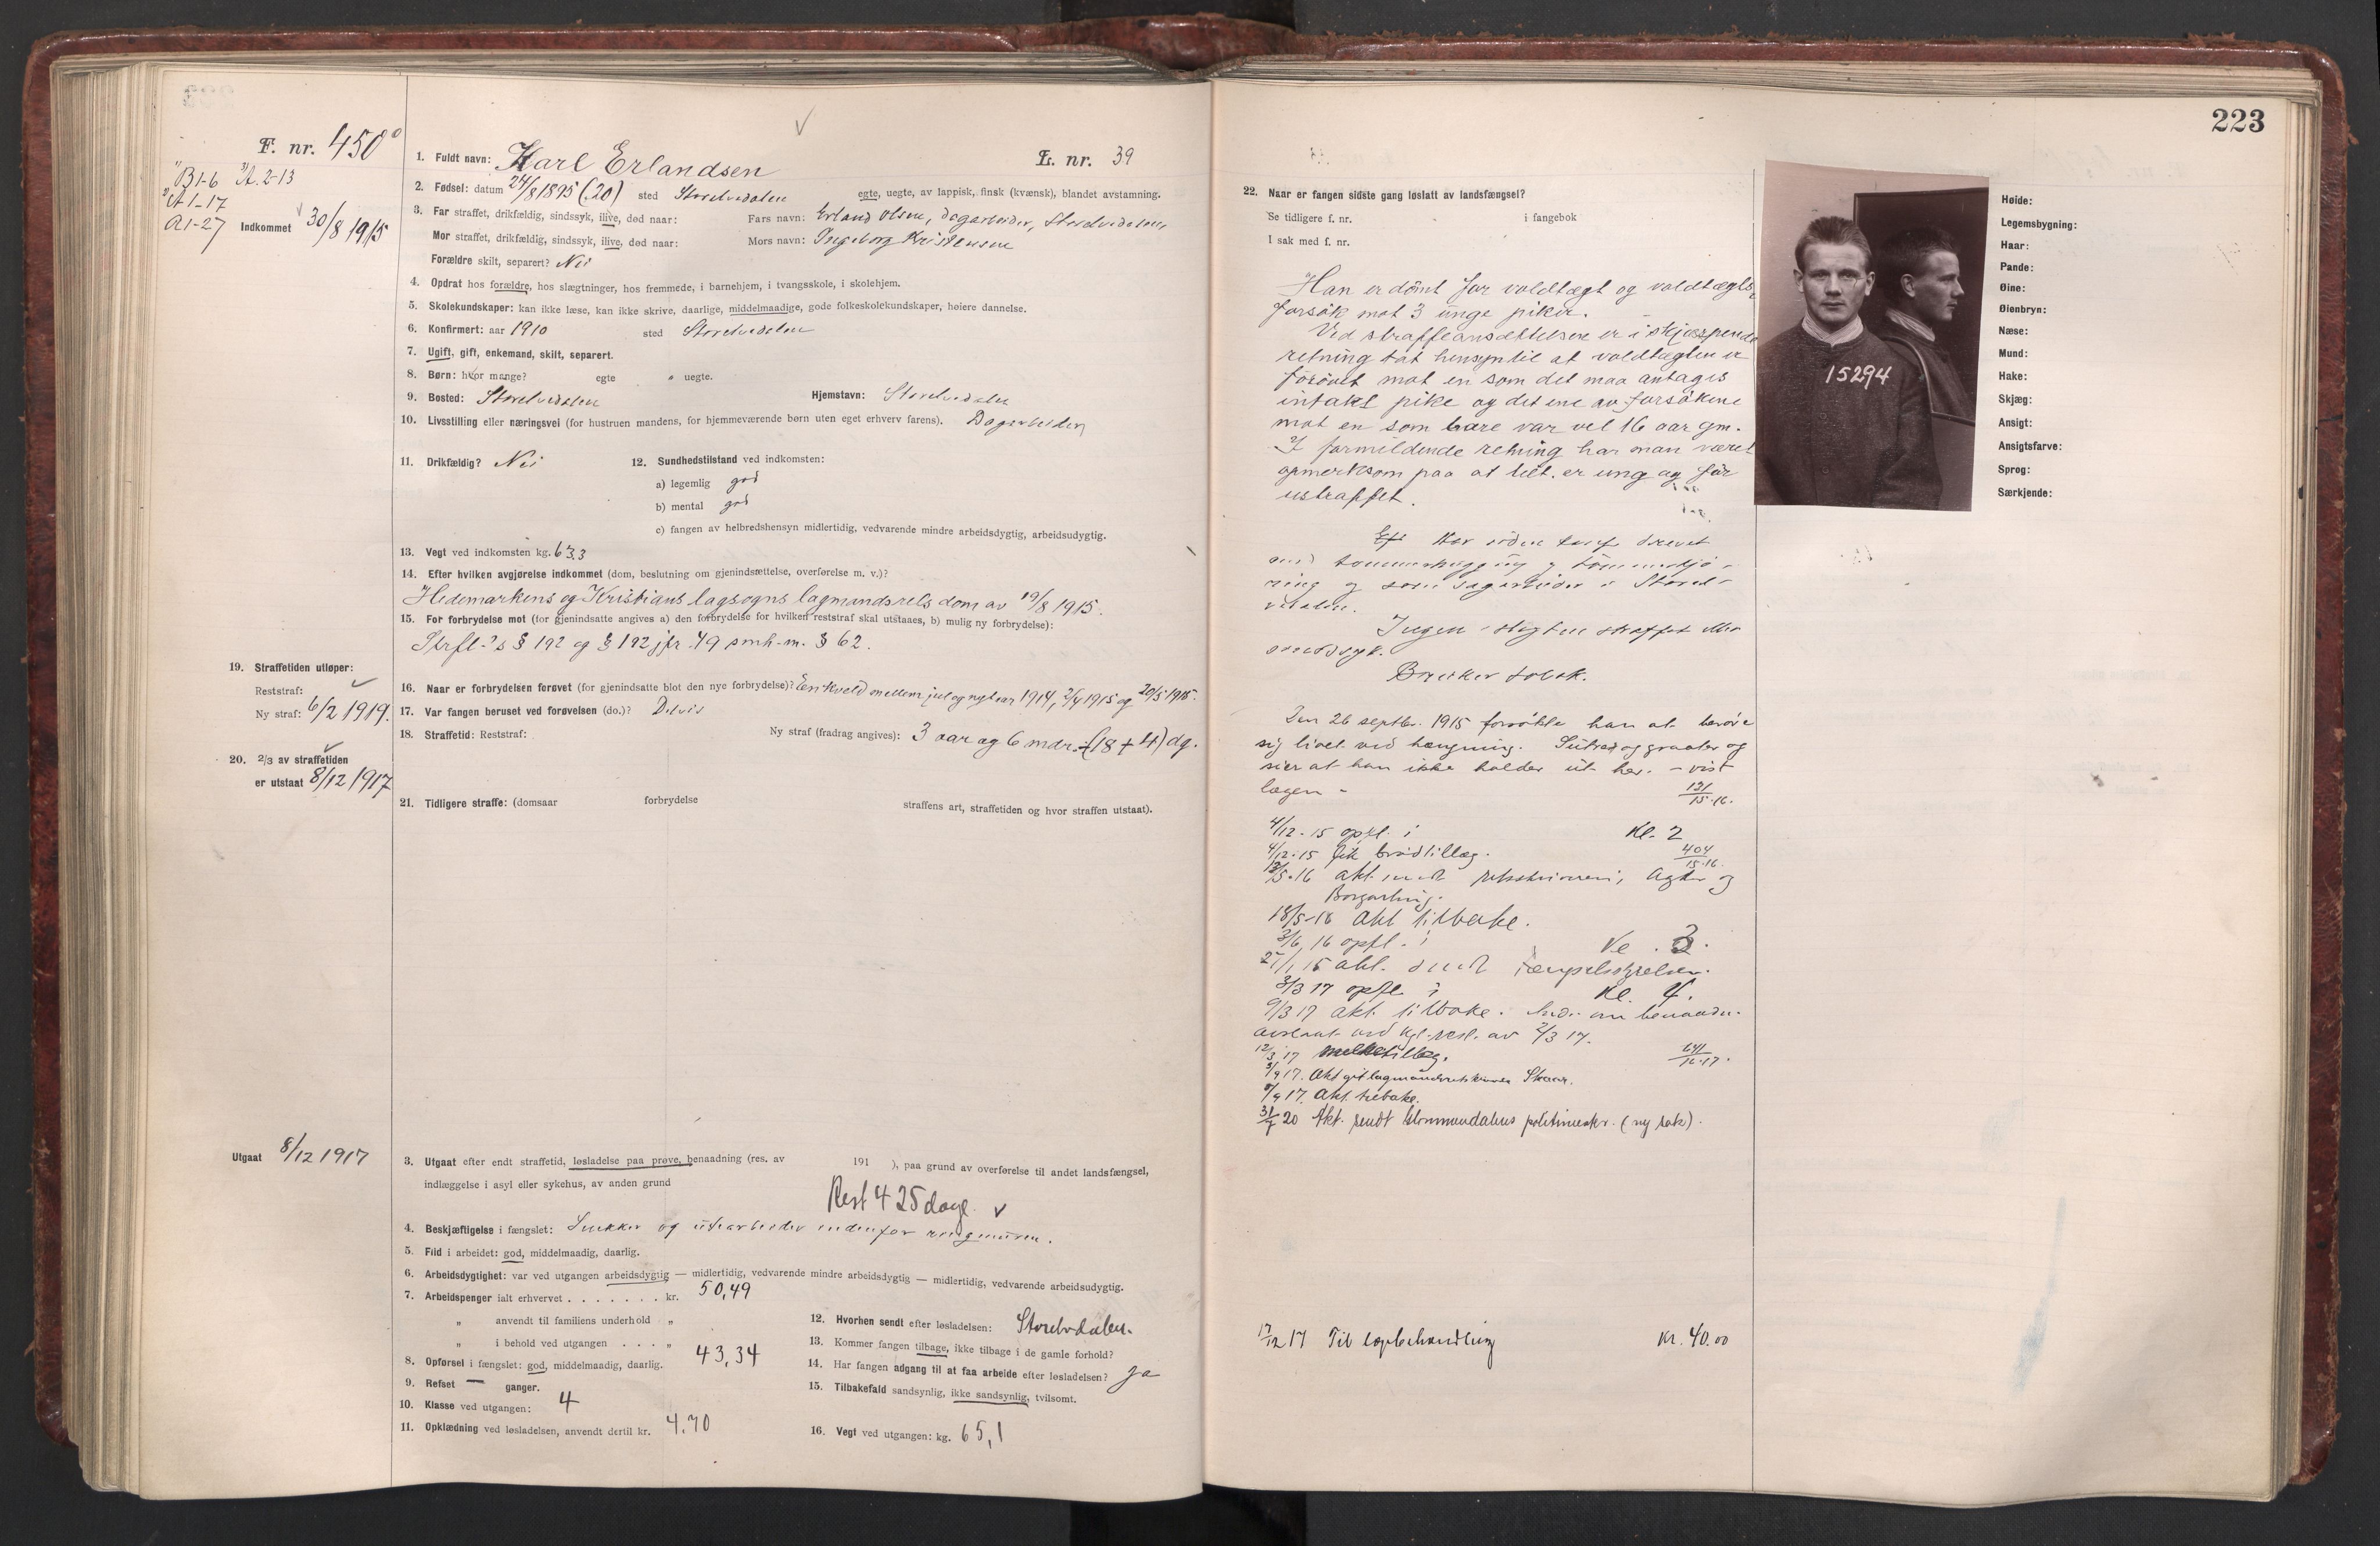 F. nr. 450
B1-6 A. 2-13
A1-17
A1-27
Indkommet 30/8 1915
L. nr. 39
1. Fuldt navn: Karl Erlandsen
2. Fødsel: datum 24/8 1895 (20) sted Storelvedalen egte, uegte, av lappisk, finsk (kvænsk), blandet avstamning.
3. Far straffet, drikfældig, sindssyk, ilive, død naar: Fars navn: Erland Olsen, dagarbeider, Storelvedalen,
Mor straffet, drikfældig, sindssyk, ilive, død naar: Mors navn: Ingeborg Kristensen
Forældre skilt, separert? Nei
4. Opdrat hos forældre, hos slægtninger, hos fremmede, i barnehjem, i tvangsskole, i skolehjem.
5. Skolekundskaper: kan ikke læse, kan ikke skrive, daarlige, middelmaadige, gode folkeskolekundskaper, høiere dannelse.
6. Konfirmert: aar 1910 sted Storelvedalen
7. Ugift, gift, enkemand, skilt, separert.
8. Børn: hvor mange? egte " uegte.
9. Bosted: Storelvedalen Hjemstavn: Storelvedalen
10. Livsstilling eller næringsvei (for hustruen mandens, for hjemmeværende børn uten eget erhverv farens). Dagarbeider
11. Drikfældig? Nei 12. Sundhedstilstand ved indkomsten:
a) legemlig god
b) mental god
c) fangen av helbredshensyn midlertidig, vedvarende mindre arbeidsdygtig, arbeidsudygtig.
13. Vegt ved indkomsten kg. 63.3
14. Efter hvilken avgjørelse indkommet (dom, beslutning om gjenindsættelse, overførelse m. v.)?
Hedemarkens og Kristians lagsogns lagmandsrets dom av 19/8 1915.
15. For forbrydelse mot (for gjenindsatte angives a) den forbrydelse for hvilken reststraf skal utstaaes, b) mulig ny forbrydelse):
Strfl-'s § 192 og § 192 jfr. 49 smh-m. § 62.
19. Straffetiden utløper:
Reststraf:
Ny straf: 6/2 1919.
16. Naar er forbrydelsen forøvet (for gjenindsatte blot den nye forbrydelse)? En kveld mellem jul og nytaar 1914, 2/4 1915 og 20/5 1915.
17. Var fangen beruset ved forøvelsen (do.)? Delvis
18. Straffetid: Reststraf: Ny straf (fradrag angives): 3 aar og 6 mdr. ÷ (18 + 4) dg.
20. 2/3 av straffetiden
er utstaat 8/12 1917
21. Tidligere straffe: (domsaar forbrydelse straffens art, straffetiden og hvor straffen utstaat).
Utgaat 8/12 1917
3. Utgaat efter endt straffetid, løsladelse paa prøve, benaadning (res. av 191 ), paa grund av overførelse til andet landsfængsel,
indlæggelse i asyl eller sykehus, av anden grund
Rest 425 dage
4. Beskjæftigelse i fængslet: Snekker og utearbeider indenfor ringmuren.
5. Flid i arbeidet: god, middelmaadig, daarlig.
6. Arbeidsdygtighet: var ved utgangen arbeidsdygtig — midlertidig, vedvarende mindre arbeidsdygtig — midlertidig, vedvarende arbeidsudygtig.
7. Arbeidspenger ialt erhvervet . . . . . . . kr. 50,49
„ anvendt til familiens underhold „
„ i behold ved utgangen . . . „ 43,34
8. Opførsel i fængslet: god, middelmaadig, daarlig.
9. Refset — ganger.
10. Klasse ved utgangen: 4
11. Opklædning ved løsladelsen, anvendt dertil kr. 4.70
12. Hvorhen sendt efter løsladelsen: Storelvdalen.
13. Kommer fangen tilbage, ikke tilbage i de gamle forhold?
14. Har fangen adgang til at faa arbeide efter løsladelsen? Ja
15. Tilbakefald sandsynlig, ikke sandsynlig, tvilsomt.
16. Vegt ved utgangen: kg. 65,1
223
22. Naar er fangen sidste gang løslatt av landsfængsel?
Se tidligere f. nr. i fangebok
I sak med f. nr.
Han er dømt for voldtægt og voldtægts-
forsøk mot 3 unge piker.
Ved straffeansættelsen er i skjærpende
retning tat hensyn til at voldtægten er
forøvet mot en som det maa antages
intakt pike og det ene av forsøkene
mot en som bare var vel 16 aar gm.
I formildende retning har man været
opmerksom paa at tilt. er ung og før
ustraffet.
Har siden konf. drevet
med tømmerhugging og tømmerkjø-
ring og som dagarbeider i Storel-
vedalen.
Ingen i slegten straffet eller
sindssyk.
Bruker tobak.
Den 26 septbr. 1915 forsøkte han at berøve
sig livet ved hængning. Sutrer og graater og
sier at han ikke holder ut her. - vist
lægen - 131/15-16.
4/12-15 opfl. i Kl. 2
4/12-15 fik brødtillæg. 404/15-16.
12/5-16 akt. sendt riksskriveren i Agder og
Borgarting.
18/5-16 akt tilbake.
3/6, 16 opfl. i Kl. 3.
akt. sendt Fængselsstyrelsen.
3/3 17 opfl i Kl. 4.
9/3 17 akt. tilbake. Andr. om benaadn.
avslaat ved kgl. resl. av 2/3 17.
12/3 17 melketillæg. 641/16-17.
3/9 17. Akt. git lagmandsretsskriver
8/9 17. Akt. tilbake.
31/7 20 Akt. sendt Glommendalens politimester. (ny sak).
17/12 17 Til løpbehandling Kr. 40.00
15294
Høide:
Legemsbygning:
Haar:
Pande:
Øine:
Øienbryn:
Næse:
Mund:
Hake:
Skjæg:
Ansigt:
Ansigtsfarve:
Sprog:
Særkjende: